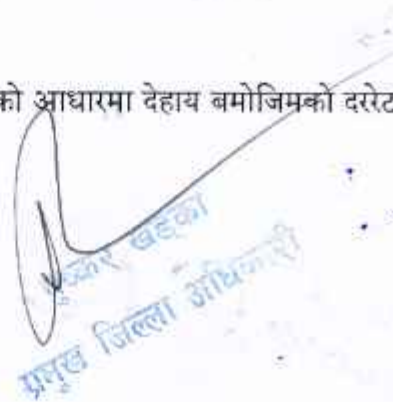 को आधारमा देहाय बमोजिमको दररेट
खड्का
प्रमुख जिल्ला अधिकारी